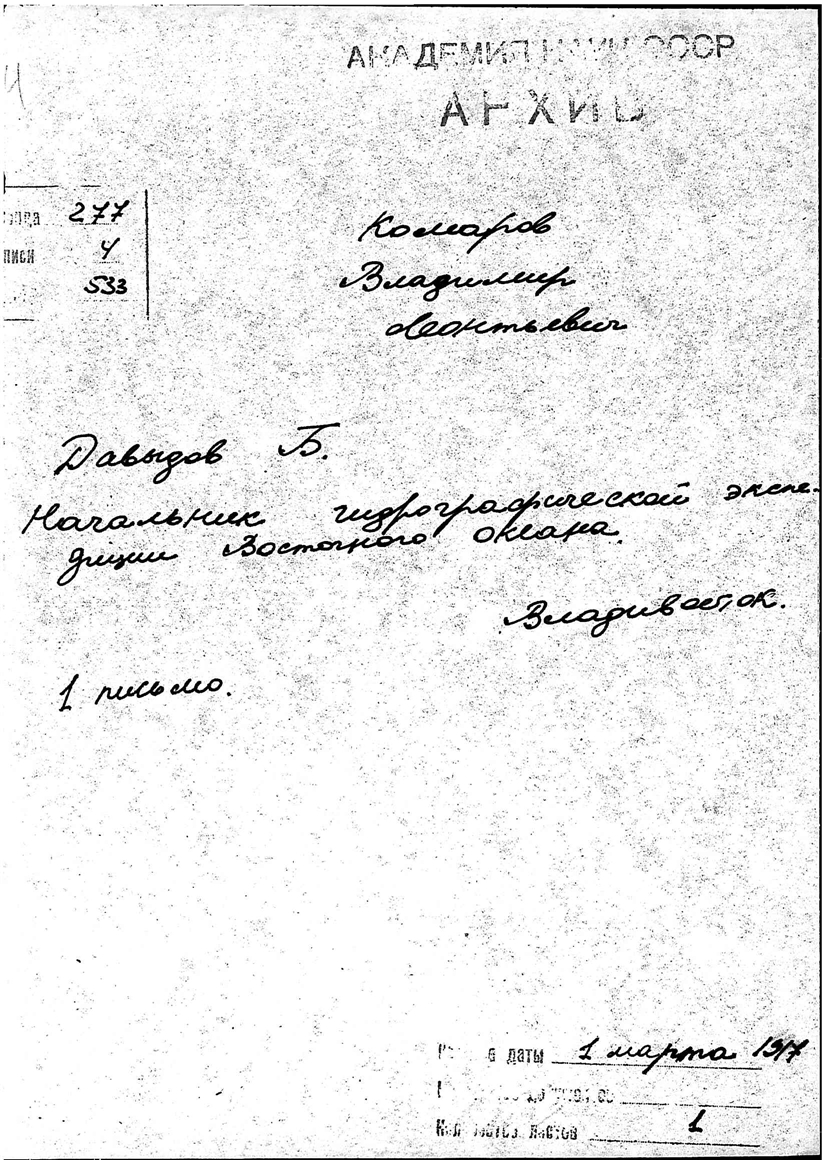 АКАДЕМИЯ НАУК СССР
АРХИВ
277
4
533
Комаров
Владимир
Леонтьевич
Давыдов Б.
Начальник гидрографической экспе-
диции Восточного океана.
Владивосток.
1 письмо.
даты 1 марта 1917
листов 1